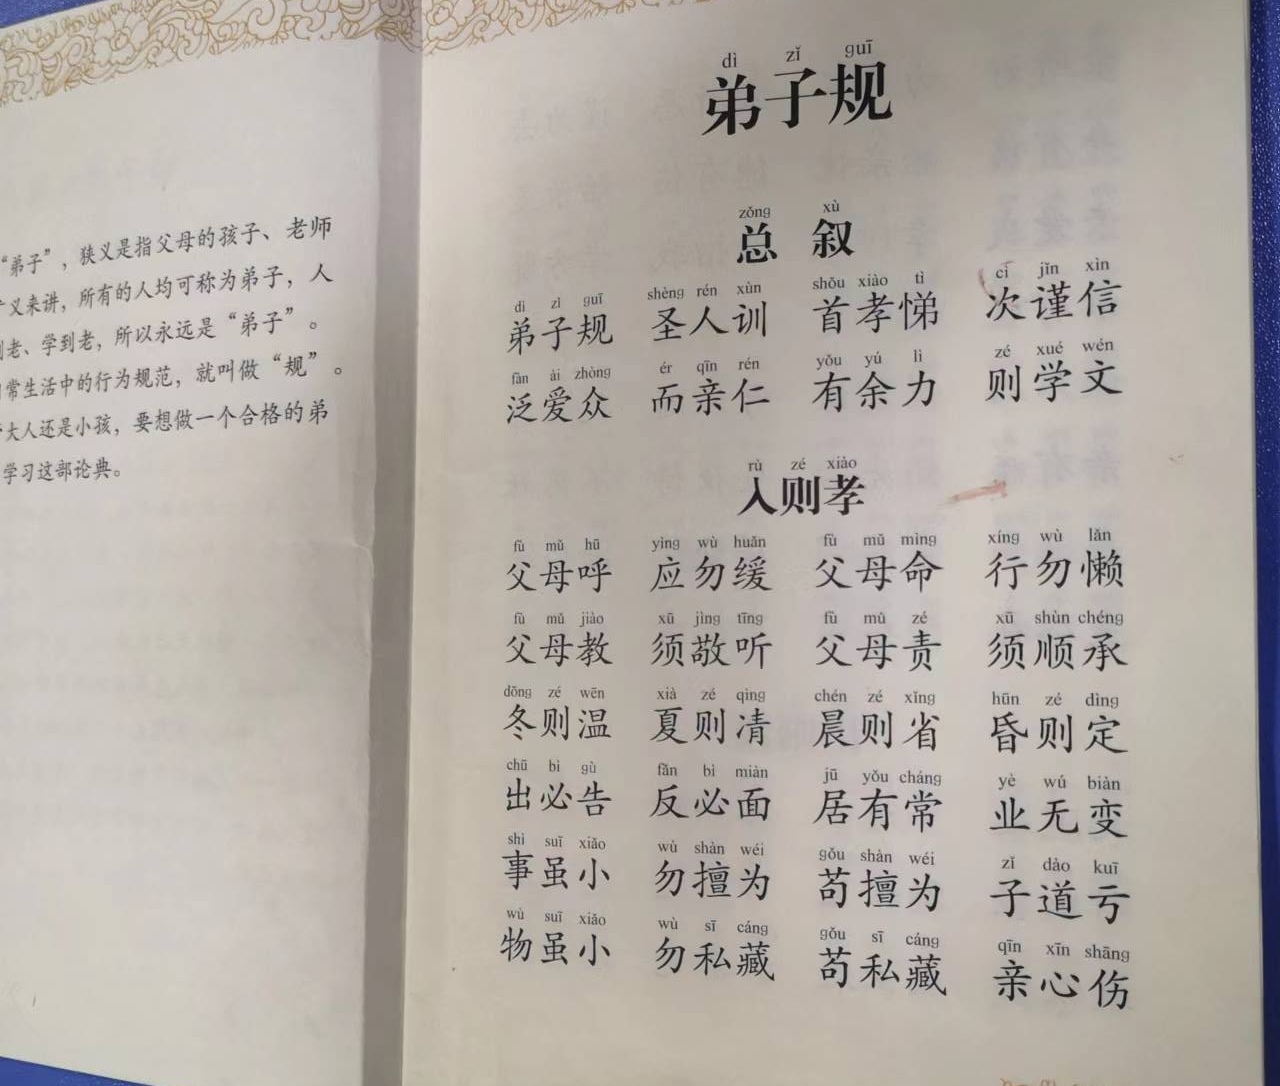 “弟子”，狭义是指父母的孩子、老师
义来讲，所有的人均可称为弟子，人
老、学到老，所以永远是“弟子”。
常生活中的行为规范，就叫做“规”。
大人还是小孩，要想做一个合格的弟
学习这部论典。
dì zǐ guī
弟子规
zǒng xù
总 叙
dì zǐ guī shèng rén xùn shǒu xiào tì cì jǐn xìn
弟子规 圣人训 首孝悌 次谨信
fàn ài zhòng ér qīn rén yǒu yú lì zé xué wén
泛爱众 而亲仁 有余力 则学文
rù zé xiào
入则孝
fù mǔ hū yìng wù huǎn fù mǔ mìng xíng wù lǎn
父母呼 应勿缓 父母命 行勿懒
fù mǔ jiào xū jìng tīng fù mǔ zé xū shùn chéng
父母教 须敬听 父母责 须顺承
dōng zé wēn xià zé qìng chén zé xǐng hūn zé dìng
冬则温 夏则凊 晨则省 昏则定
chū bì gù fǎn bì miàn jū yǒu cháng yè wú biàn
出必告 反必面 居有常 业无变
shì suī xiǎo wù shàn wéi gǒu shàn wéi zǐ dào kuī
事虽小 勿擅为 苟擅为 子道亏
wù suī xiǎo wù sī cáng gǒu sī cáng qīn xīn shāng
物虽小 勿私藏 苟私藏 亲心伤